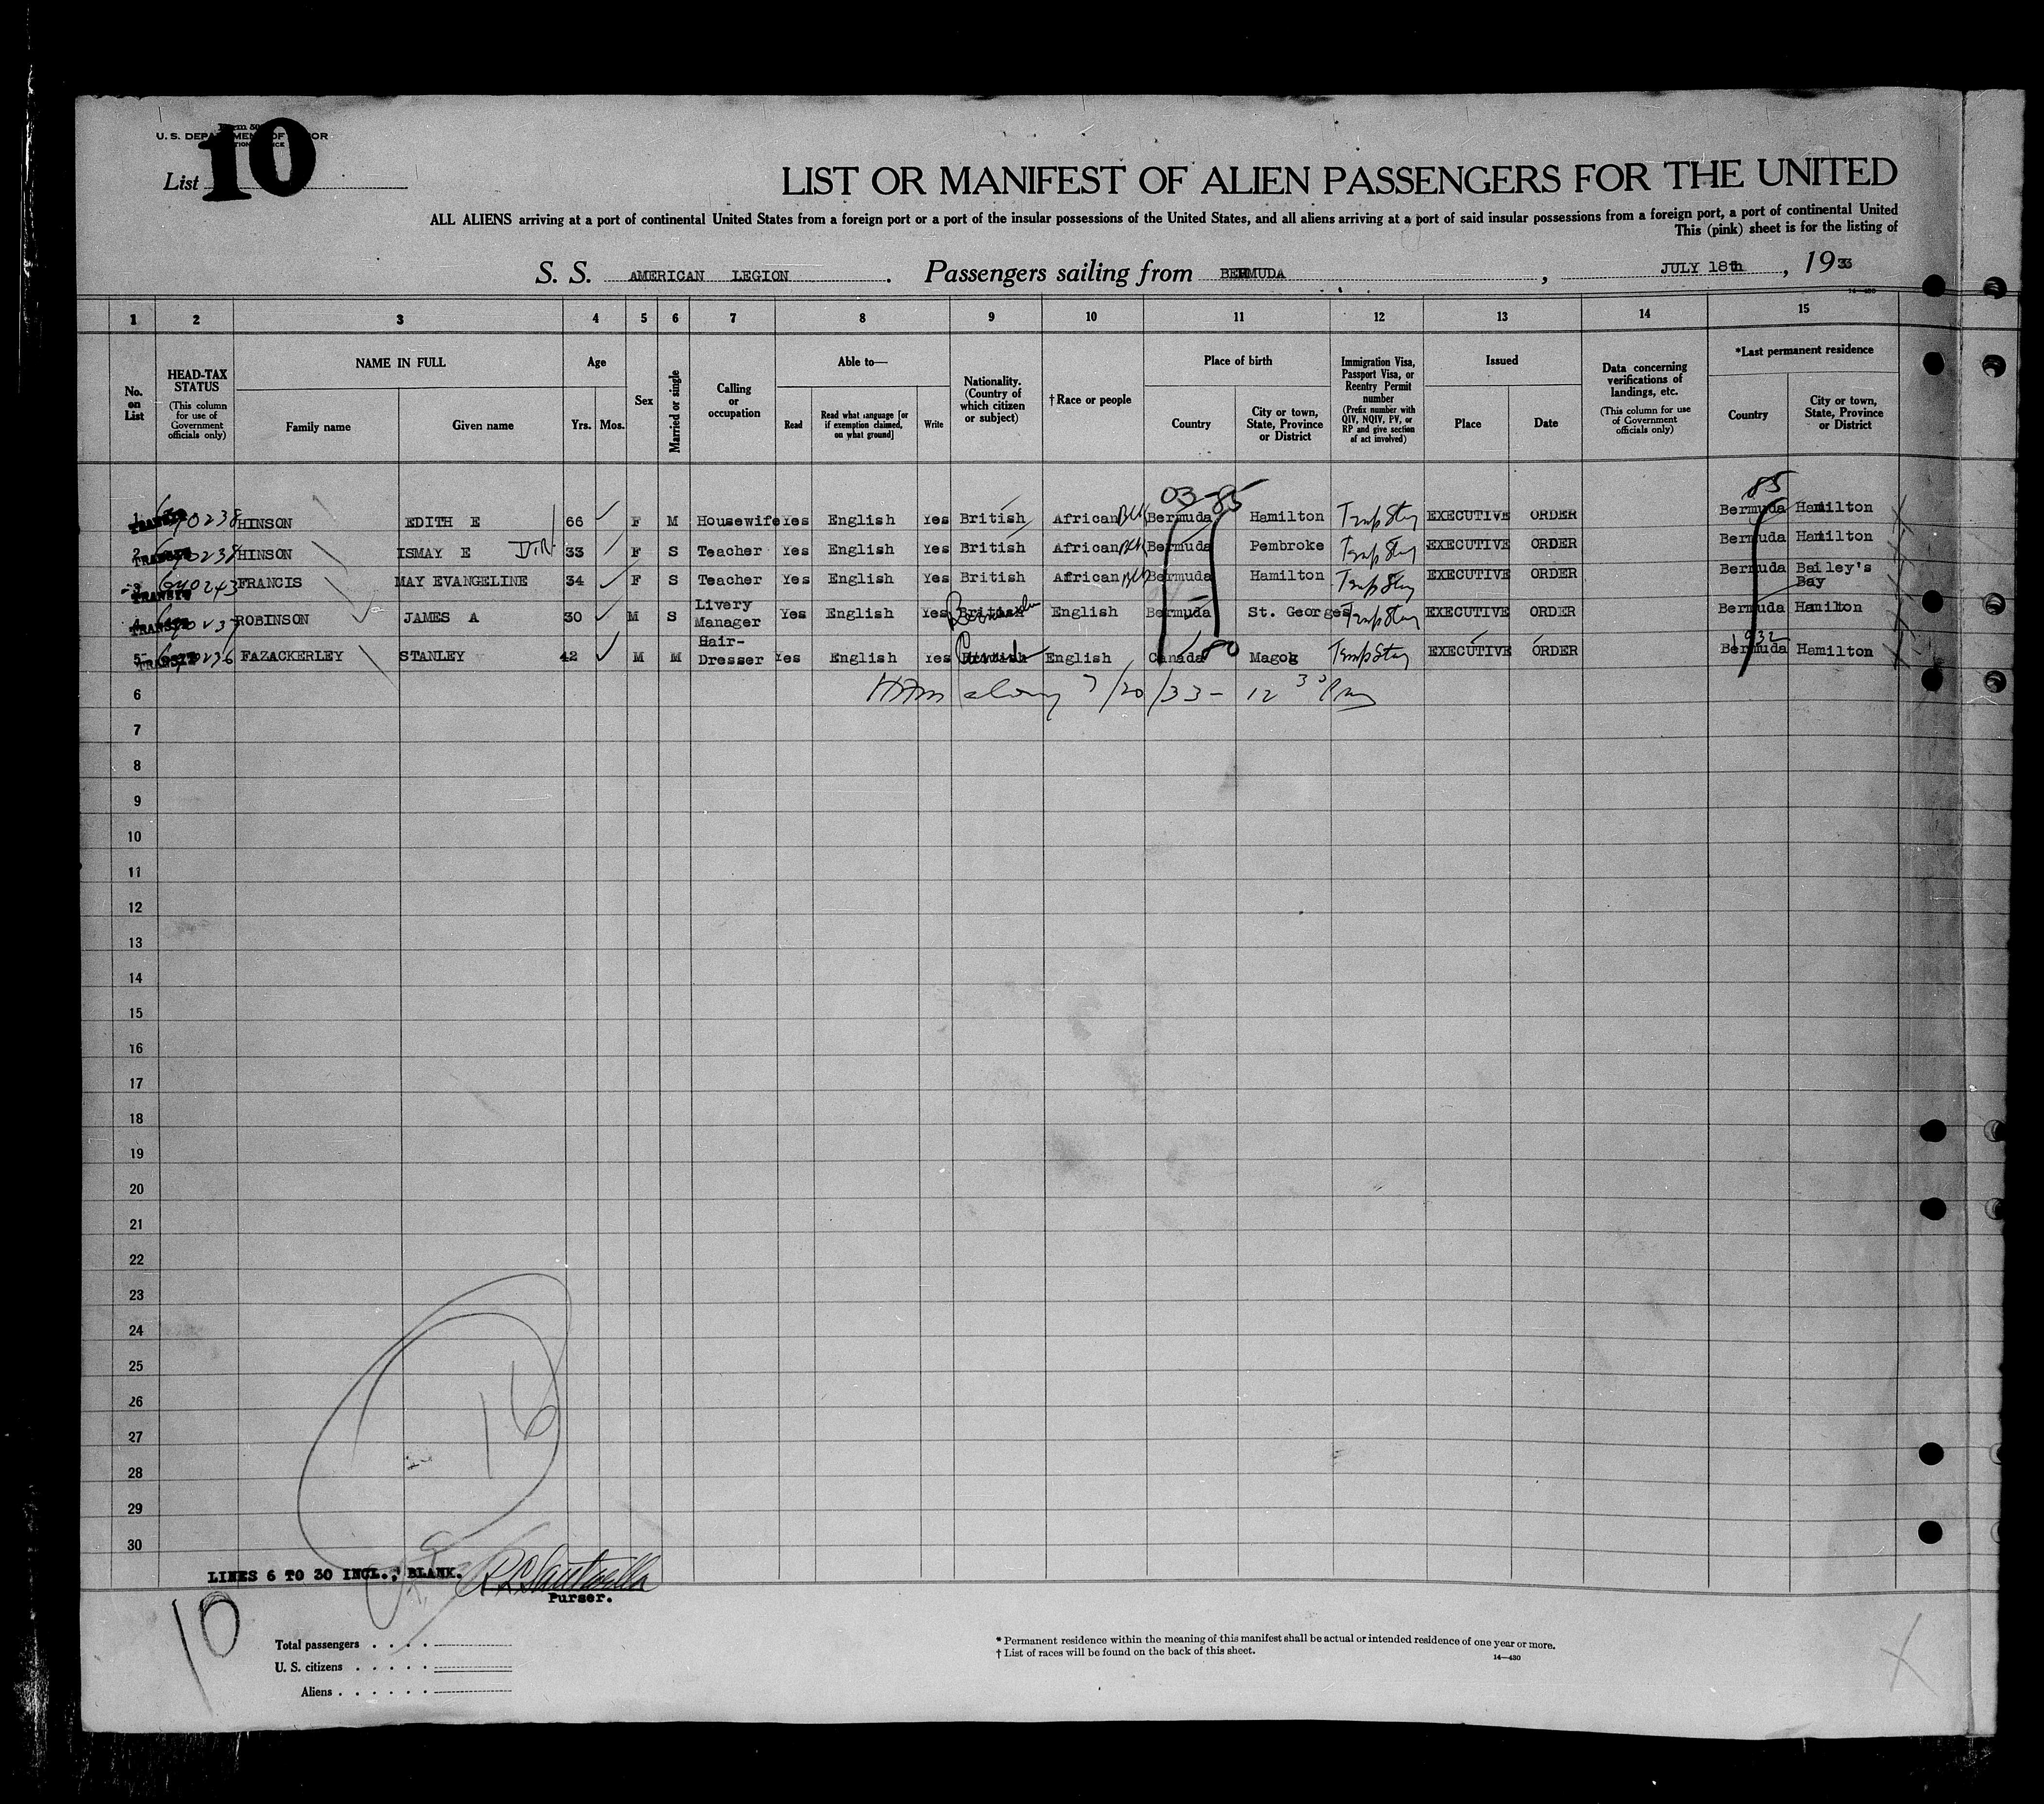 Form 50
U. S. DEPARTMENT OF LABOR
List 10
LIST OR MANIFEST OF ALIEN PASSENGERS FOR THE UNITED
ALL ALIENS arriving at a port of continental United States from a foreign port or a port of the insular possessions of the United States, and all aliens arriving at a port of said insular possessions from a foreign port, a port of continental United
This (pink) sheet is for the listing of
S. S. AMERICAN LEGION. Passengers sailing from BERMUDA, JULY 18th, 1933
14—430
1 2 3 4 5 6 7 8 9 10 11 12 13 14 15
No. on List
HEAD-TAX STATUS (This column for use of Government officials only)
NAME IN FULL
Family name Given name
Age
Yrs. Mos.
Sex
Married or single
Calling or occupation
Able to—
Read Read what language [or if exemption claimed, on what ground] Write
Nationality. (Country of which citizen or subject)
† Race or people
Place of birth
Country City or town, State, Province or District
Immigration Visa, Passport Visa, or Reentry Permit number (Prefix number with QIV, NQIV, PV, or RP and give section of act involved)
Issued
Place Date
Data concerning verifications of landings, etc. (This column for use of Government officials only)
*Last permanent residence
Country City or town, State, Province or District
03-85 85
1 TRANSIT 690238 HINSON EDITH E 66 F M Housewife Yes English Yes British African Blk Bermuda Hamilton Temp Stay EXECUTIVE ORDER Bermuda Hamilton
2 TRANSIT 690238 HINSON ISMAY E 33 F S Teacher Yes English Yes British African Blk Bermuda Pembroke Temp Stay EXECUTIVE ORDER Bermuda Hamilton
3 TRANSIT 690243 FRANCIS MAY EVANGELINE 34 F S Teacher Yes English Yes British African Blk Bermuda Hamilton Temp Stay EXECUTIVE ORDER Bermuda Bailey's Bay
4 TRANSIT 690237 ROBINSON JAMES A 30 M S Livery Manager Yes English Yes British English Bermuda St. Georges Temp Stay EXECUTIVE ORDER Bermuda Hamilton
5 TRANSIT 690236 FAZACKERLEY STANLEY 42 M M Hair-Dresser Yes English Yes British English Canada 80 Magog Temp Stay EXECUTIVE ORDER 1932 Bermuda Hamilton
6 7/20/33 - 12 30 Pm
7
8
9
10
11
12
13
14
15
16
17
18
19
20
21
22
23
24
25
26
27
28
29
30
16
LINES 6 TO 30 INCL., BLANK.
Purser.
10
Total passengers . . . .
U. S. citizens . . . . .
Aliens . . . . . .
* Permanent residence within the meaning of this manifest shall be actual or intended residence of one year or more.
† List of races will be found on the back of this sheet.
14—430
X